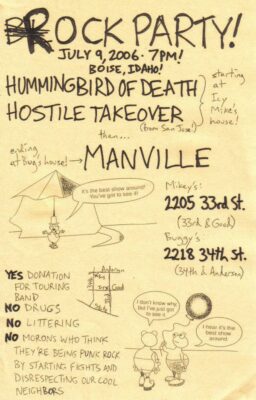 ROCK PARTY!
JULY 9, 2006 · 7PM!
BOISE, IDAHO!
HUMMINGBIRD OF DEATH
HOSTILE TAKEOVER
(from San Jose!)
starting
at
Icy
Mike's
house!
then...
ending
at Bug's house! → MANVILLE
It's the best show around!
You've got to see it!
Mikey's:
2205 33rd St.
(33rd & Good)
Buggy's
2218 34th St.
(34th & Anderson)
YES DONATION
FOR TOURING
BAND
NO DRUGS
NO LITTERING
NO MORONS WHO THINK
THEY'RE BEING PUNK ROCK
BY STARTING FIGHTS AND
DISRESPECTING OUR COOL
NEIGHBORS
Anderson
Good
I don't know why
But I've just got
to see it
I hear it's the
best show
around.